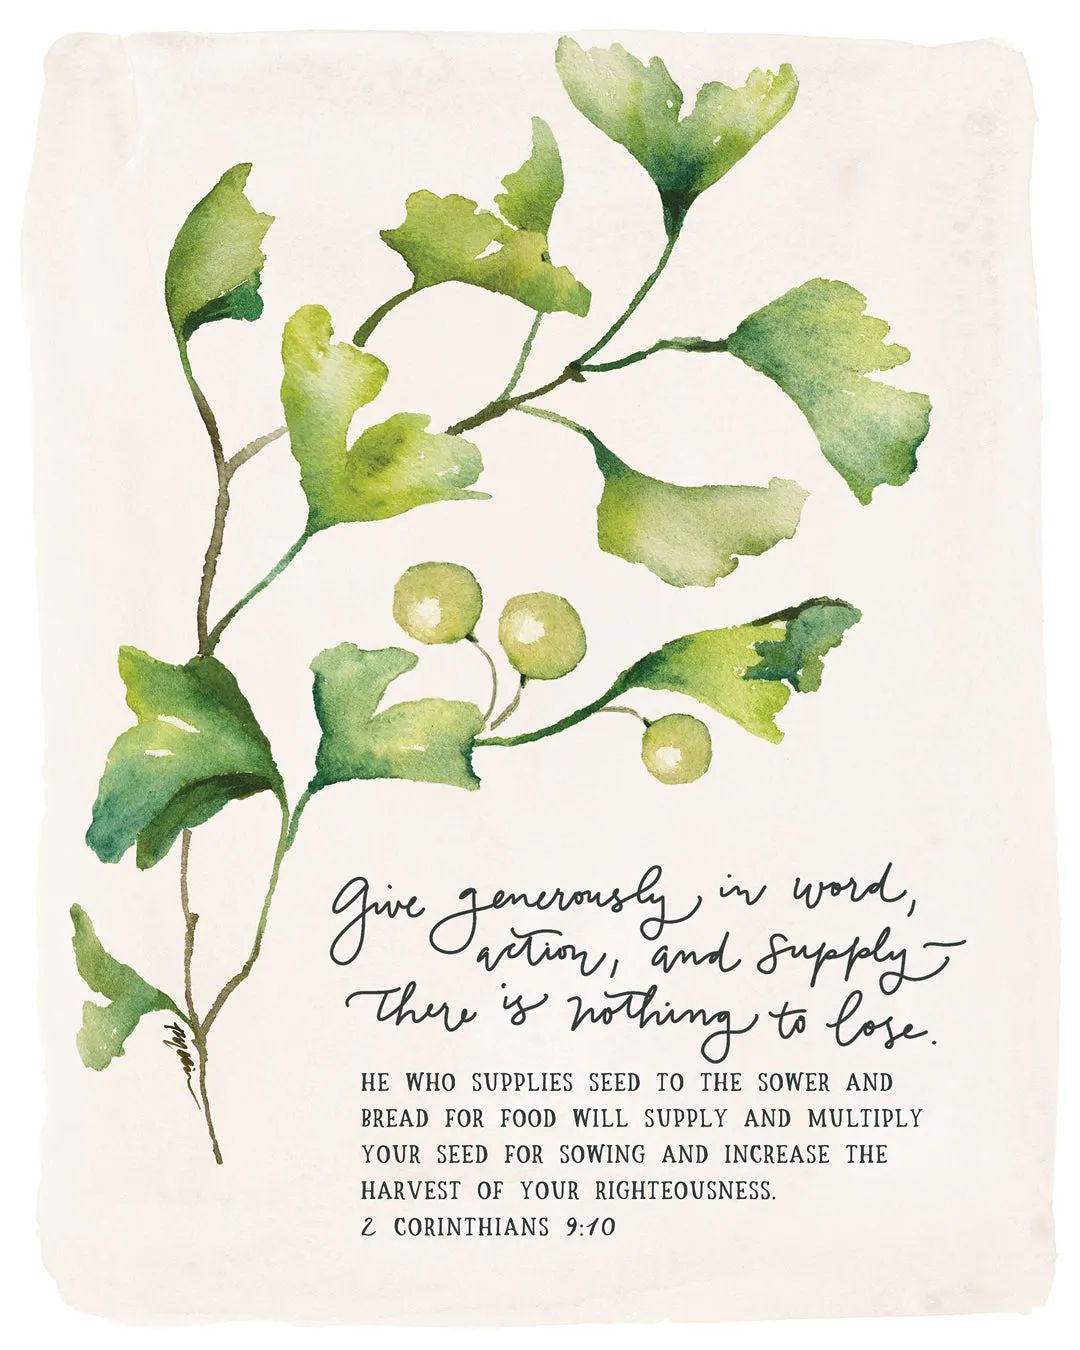 Give generously in word,
action, and supply—
There is nothing to lose.
HE WHO SUPPLIES SEED TO THE SOWER AND
BREAD FOR FOOD WILL SUPPLY AND MULTIPLY
YOUR SEED FOR SOWING AND INCREASE THE
HARVEST OF YOUR RIGHTEOUSNESS.
2 CORINTHIANS 9:10